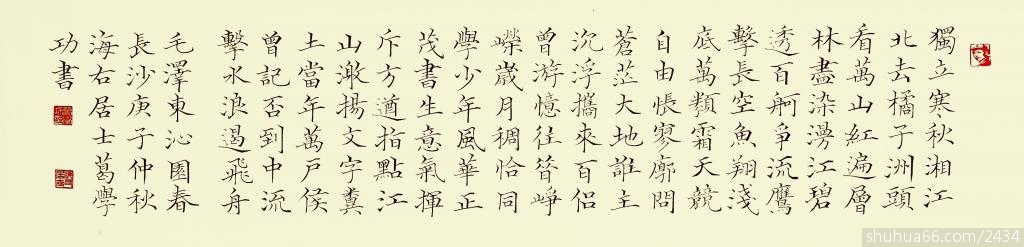 獨立寒秋湘江
北去橘子洲頭
看萬山紅遍層
林盡染漫江碧
透百舸爭流鷹
擊長空魚翔淺
底萬類霜天競
自由悵寥廓問
蒼茫大地誰主
沉浮攜來百侶
曾游憶往昔崢
嶸歲月稠恰同
學少年風華正
茂書生意氣揮
斥方遒指點江
山激揚文字糞
土當年萬戶侯
曾記否到中流
擊水浪遏飛舟
毛澤東沁園春
長沙庚子仲秋
海右居士葛學
功書
shuhua66.com/2434